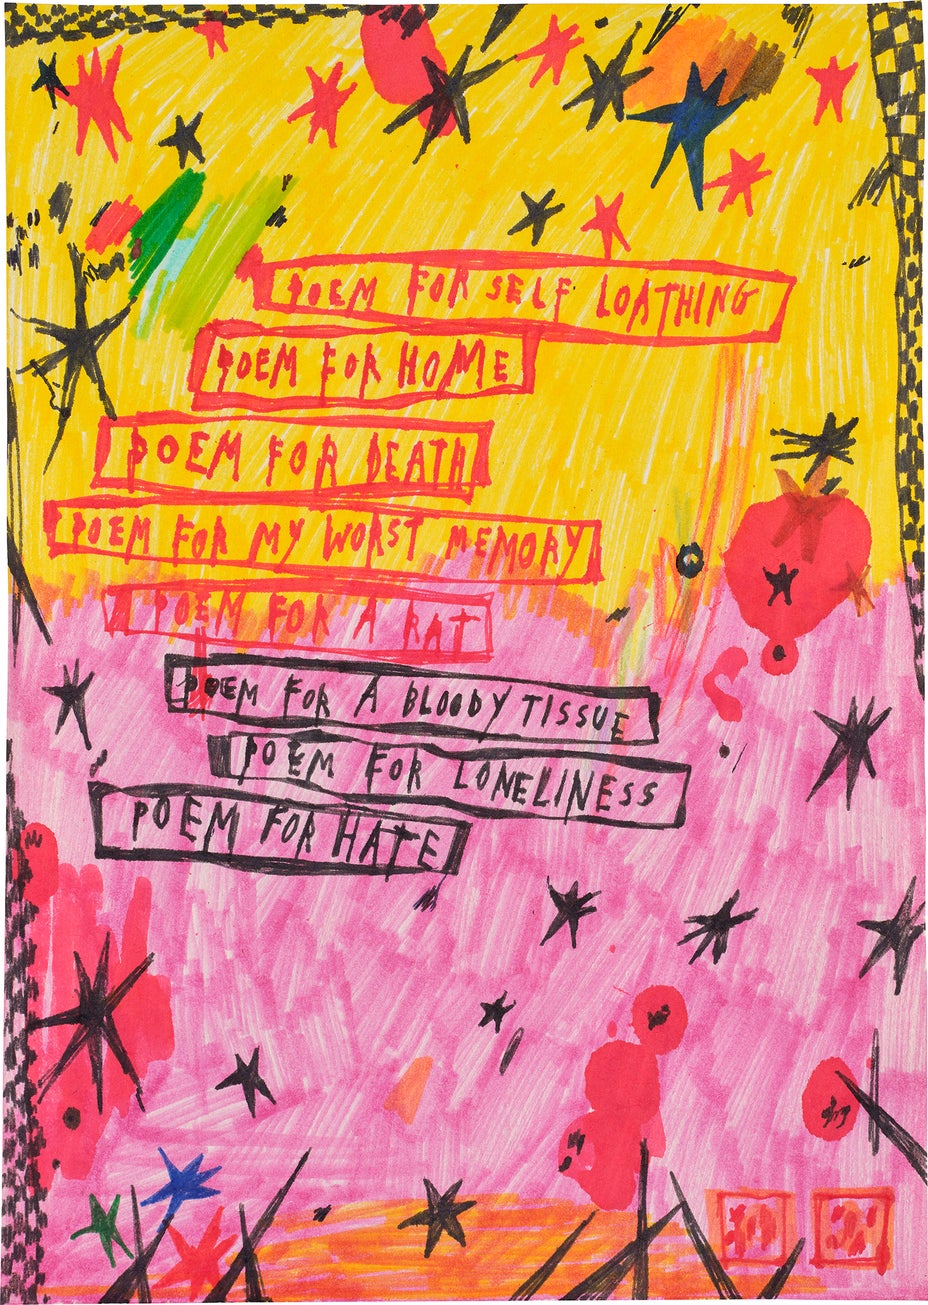 POEM FOR SELF LOATHING
POEM FOR HOME
POEM FOR DEATH
POEM FOR MY WORST MEMORY
A POEM FOR A RAT
POEM FOR A BLOODY TISSUE
POEM FOR LONELINESS
POEM FOR HATE